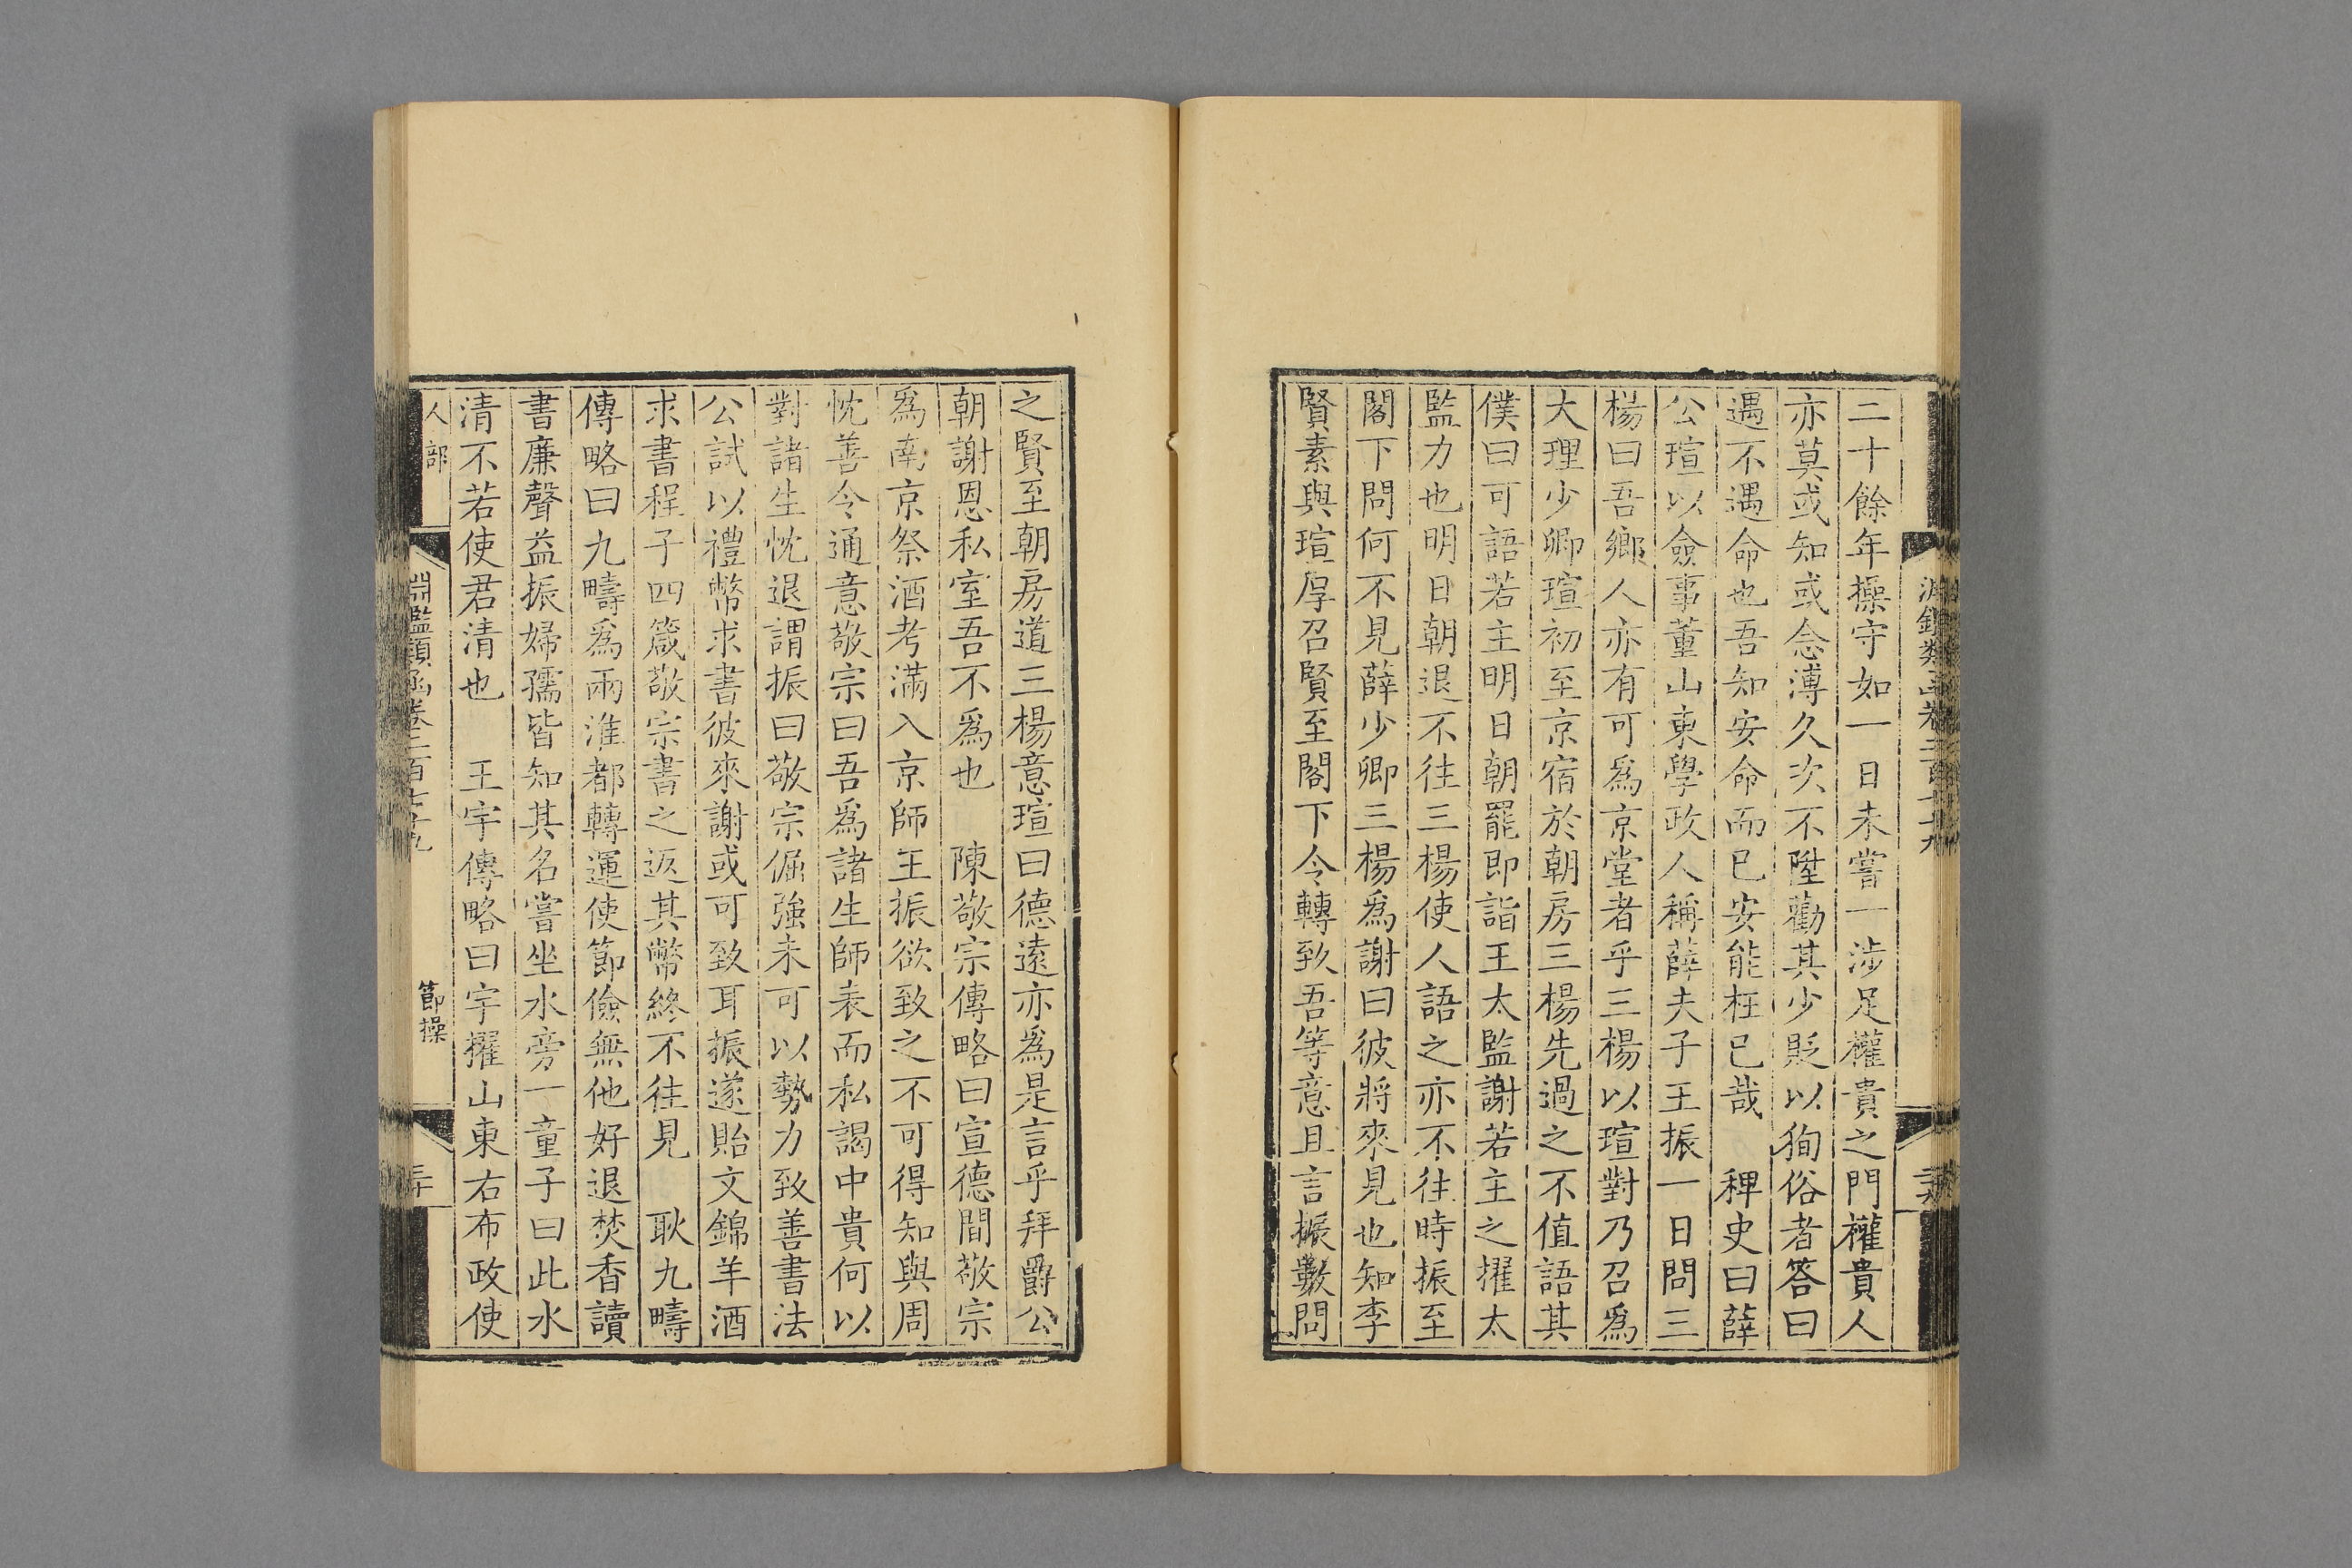 二十餘年操守如一日未嘗一涉足權貴之門權貴人
亦莫或知或念溥久次不陞勸其少貶以狥俗者答曰
遇不遇命也吾知安命而已安能枉已哉　稗史曰薛
公瑄以僉事董山東學政人稱薛夫子王振一日問三
楊曰吾鄉人亦有可爲京堂者乎三楊以瑄對乃召爲
大理少卿瑄初至京宿於朝房三楊先過之不值語其
僕曰可語若主明日朝罷即詣王太監謝若主之擢太
監力也明日朝退不往三楊使人語之亦不往時振至
閣下問何不見薛少卿三楊爲謝曰彼將來見也知李
賢素與瑄厚召賢至閣下令轉致吾等意且言振數問
之賢至朝房道三楊意瑄曰德遠亦爲是言乎拜爵公
朝謝恩私室吾不爲也　陳敬宗傳略曰宣德間敬宗
爲南京祭酒考滿入京師王振欲致之不可得知與周
忱善令通意敬宗曰吾爲諸生師表而私謁中貴何以
對諸生忱退謂振曰敬宗倔強未可以勢力致善書法
公試以禮幣求書彼來謝或可致耳振遂貽文錦羊酒
求書程子四箴敬宗書之返其幣終不往見　耿九疇
傳略曰九疇爲兩淮都轉運使節儉無他好退焚香讀
書廉聲益振婦孺皆知其名嘗坐水旁一童子曰此水
清不若使君清也　王宇傳略曰宇擢山東右布政使
人部
淵鑑類函卷二百七十九
節操
三十